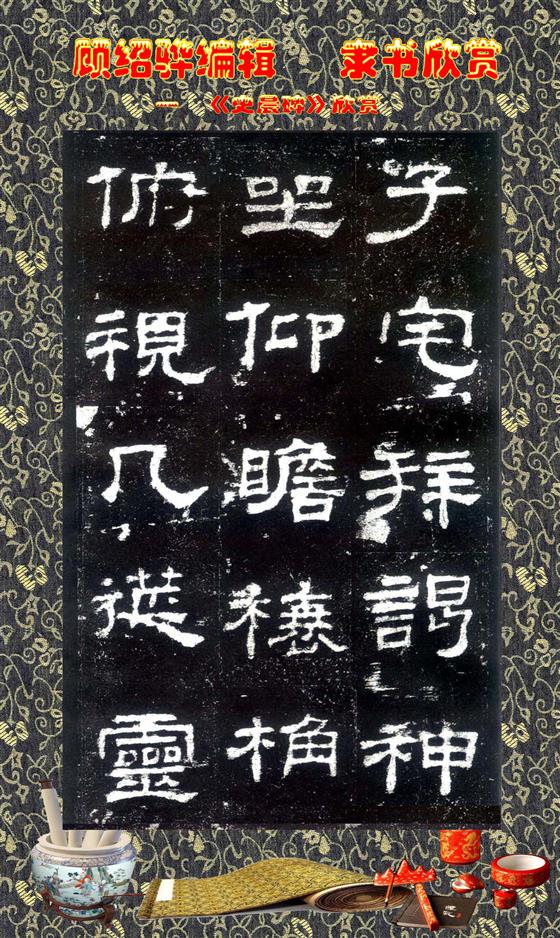 顾绍骅编辑 隶书欣赏
一 《史晨碑》欣赏
子宅拜謁神
坐仰瞻榱桷
俯視几筵靈